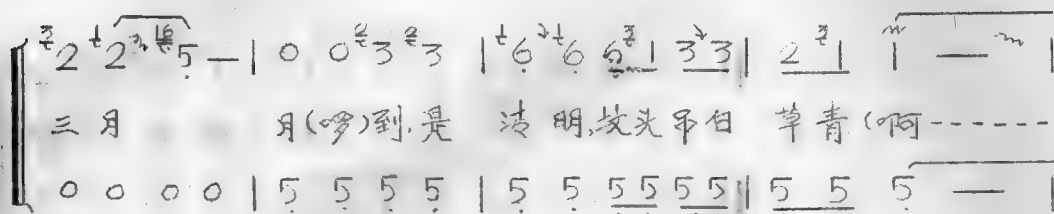 2 2 5 — | 0 0 3 3 | 6 6 6 1 3 3 | 2 1 1 —
三月 月(啰)到是 清明,坟头吊白 草青(啊------
0 0 0 0 | 5 5 5 5 | 5 5 5 5 5 5 | 5 5 5 —